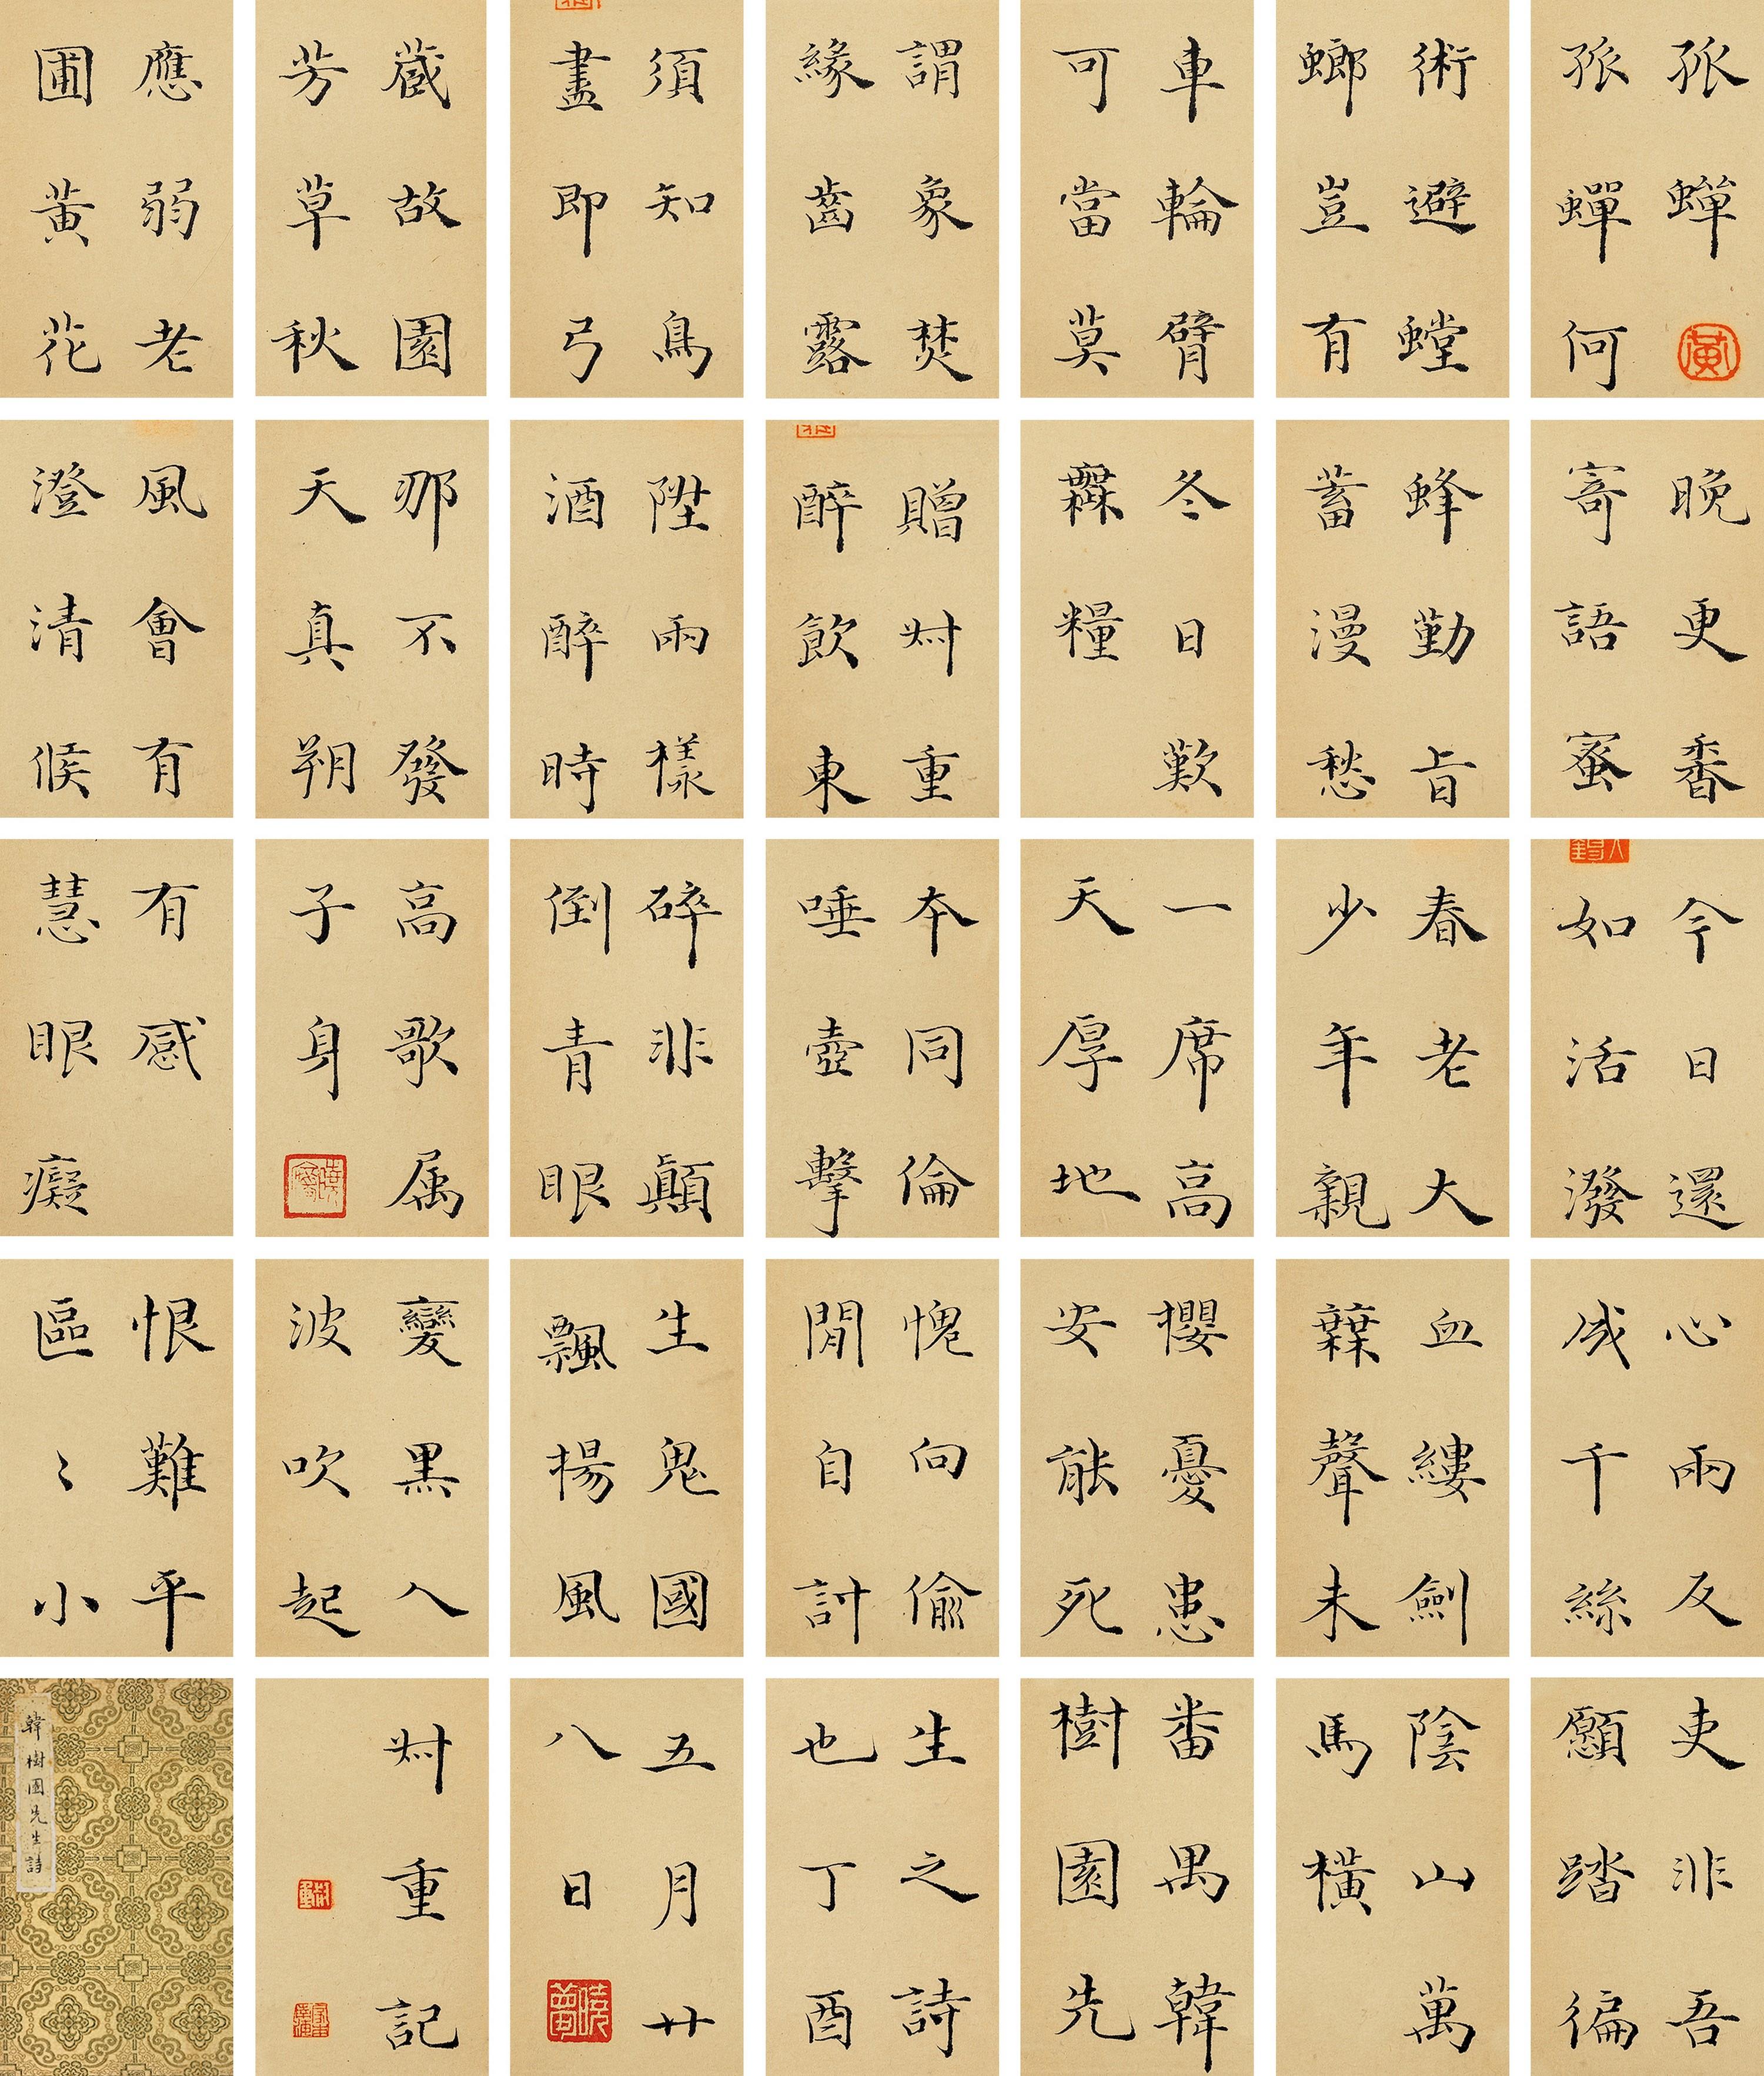 孤蟬
孤蟬何
術避螳
螂豈有
車輪臂
可當莫
謂象焚
緣齒露
須知鳥
盡即弓
藏故園
芳草秋
應弱老
圃黃花
晚更香
寄語蜜
蜂勤旨
蓄漫愁
冬日歎
橆糧
贈艸重
醉飲東
陞雨樣
酒醉時
那不發
天真朔
風會有
澄清候
今日還
如活潑
春老大
少年親
一席高
天厚地
本同倫
唾壺擊
碎非顛
倒青眼
高歌属
子身
有感
慧眼癡
心兩反
成千絲
血縷劍
聲未
攖憂患
安能死
愧向偷
閒自討
生鬼國
飄揚風
變黑入
波吹起
恨難平
區〻小
吏非吾
願踏徧
陰山萬
馬橫
番禺韓
樹園先
生之詩
也丁酉
五月廿
八日
艸重記
韓樹園先生詩